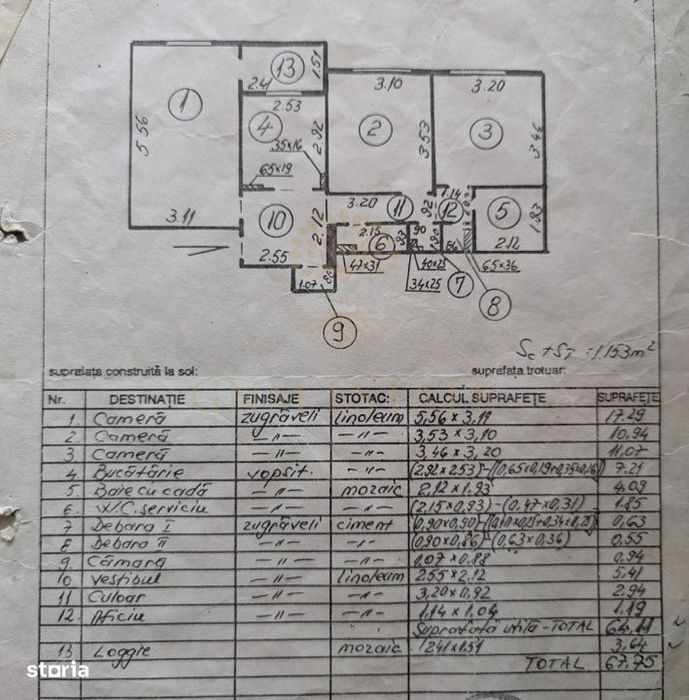 13 1.51
2.41
1 5.56 3.11
2.53
4 2.92
35x16
65x19
3.10
2 3.53
3.20
3 3.46
10 2.12
2.55
3.20 11 92
1.14
12
5 1.93
2.12
2.15
6 93
90
47x31
40x25
34x25
86
65x36
7
8
1.07
9
Sc + ST = 1.153 m²
suprafața construită la sol: suprafața trotuar:
Nr. DESTINAȚIE FINISAJE STOTAC: CALCUL SUPRAFEȚE SUPRAFEȚE
1 Cameră zugrăveli linoleum 5,56 x 3,11 17.29
2. Cameră —"— —"— 3,53 x 3,10 10,94
3 Cameră —"— —"— 3,46 x 3,20 11,07
4 Bucătărie vopsit. —"— (2,92 x 2,53)-(0,65x0,19+0,35x0,16) 7.21
5. Baie cu cadă —"— mozaic 2,12 x 1,93 4,09
6. W.C. serviciu —"— —"— (2,15 x 0,93)-(0,47 x 0,31) 1.85
7 Debara I zugrăveli ciment (0,90x0,90)-(0,40x0,25+0,34x0,25) 0,63
8 Debara II —"— —"— (0,90 x 0,86)-(0,63 x 0,36) 0,55
9 Cămară —"— —"— 1,07 x 0,88 0,94
10 Vestibul —"— linoleum 2,55 x 2,12 5,41
11 Culoar —"— —"— 3,20 x 0,92 2,94
12. Oficiu —"— —"— 1,14 x 1,04 1,19
Suprafată utilă - TOTAL 64.11
13 Loggie mozaic 2,41 x 1,51 3,64
TOTAL 67.75
storia